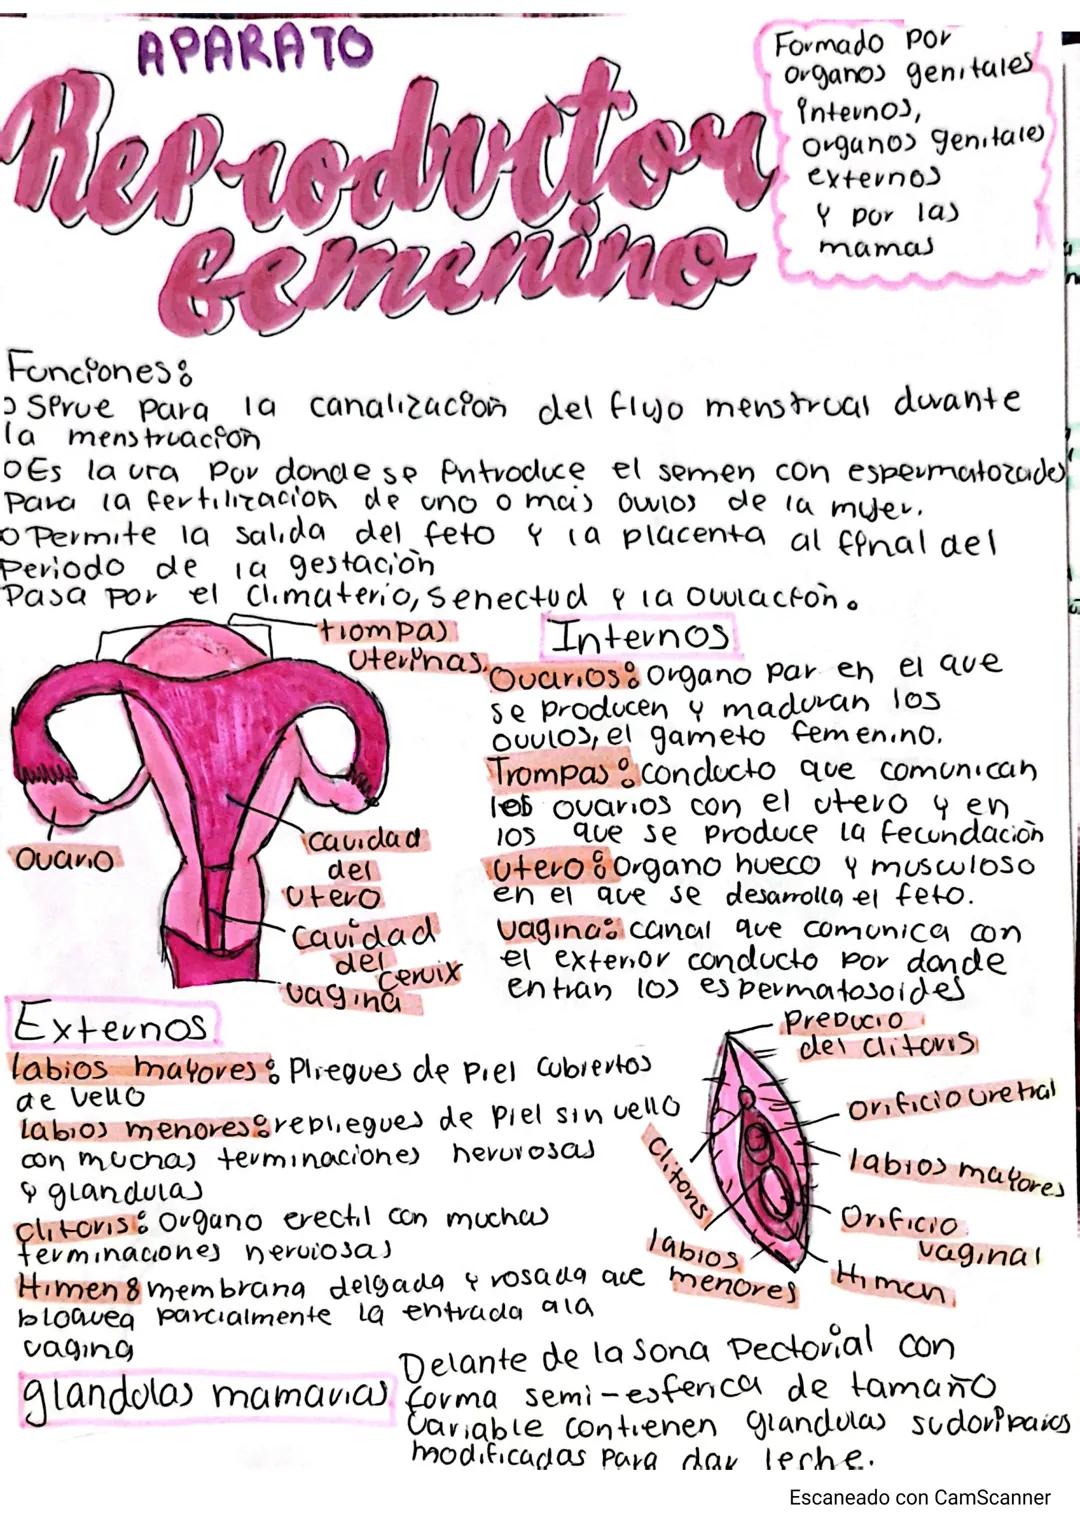 APARATO
Reproductor
femenino
Formado por
organos genitales
internos,
organos genitales
externos
y por las
mamas
Funciones:
Sirve para la canalización del flujo menstrual durante
la menstruación
Es la vra por donde se introduce el semen con espermatozades
para la fertilización de uno o mais ovulos de la mujer.
Permite la salida del feto y la placenta al final del
Periodo de la gestación
Pasa por el climaterio, senectud y la ovulación.
trompas
uterinas.
Ovario
cavidad
del
utero
Cavidad
del
cervix
vagina
Internos
Ovarios: organo par en el que
se producen y maduran los
ovulos, el gameto femenino.
Trompas: conducto que comunican
los ovarios con el utero y en
los que se produce la fecundación
Utero: organo hueco y musculoso
en el que se desarrolla el feto.
vagina: canal que comunica con
el exterior conducto por donde
entran los espermatosoides
Externos
labios mayores: Pliegues de piel cubiertos
de vello
labios menores: repliegues de piel sin vello
con muchas terminaciones nervrosas
y glandulas
clitoris: organo erectil con muchas
terminaciones nerviosas
Himen: membrana delgada y rosada que
bloquea parcialmente la entrada a la
vagina
prepucio
del clitoris
orificio uretral
labios mayores
Orificio
vaginal
Himen
Clitoris
labios
menores
glandulas mamarias
Delante de la sona pectorial con
forma semi-esferica de tamaño
variable contienen glandulas sudoriparas
modificadas para dar leche.
Escaneado con CamScanner